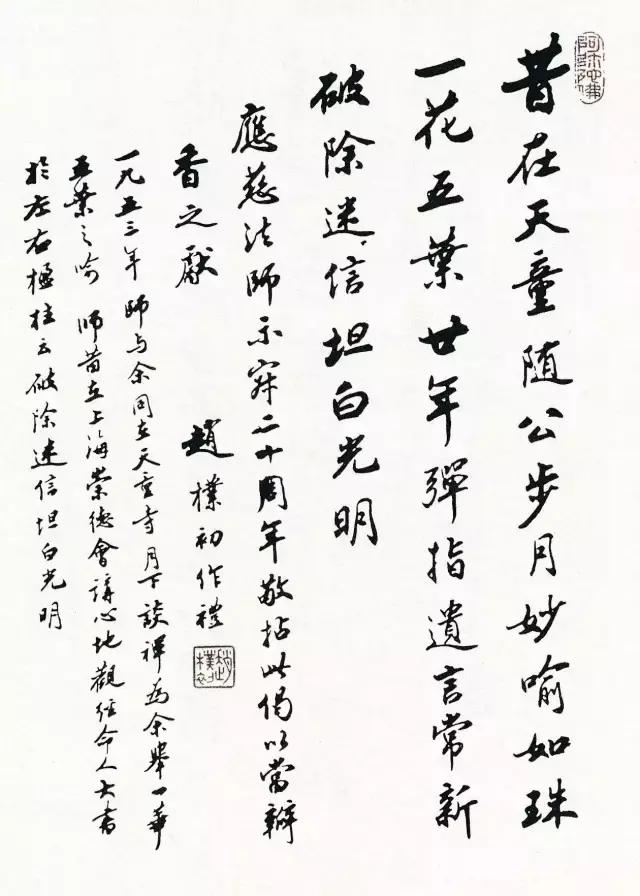 阿弥陀佛
昔在天童随公步月妙喻如珠
一花五葉廿年彈指遺言常新
破除迷信坦白光明
應慈法師示寂二十周年敬拈此偈以當瓣
香之獻
趙樸初作禮
趙樸初
一九五三年師与余同在天童寺月下談禅為余舉一華
五葉之喻師昔在上海崇德會講心地觀經命人大書
於左右楹柱云破除迷信坦白光明